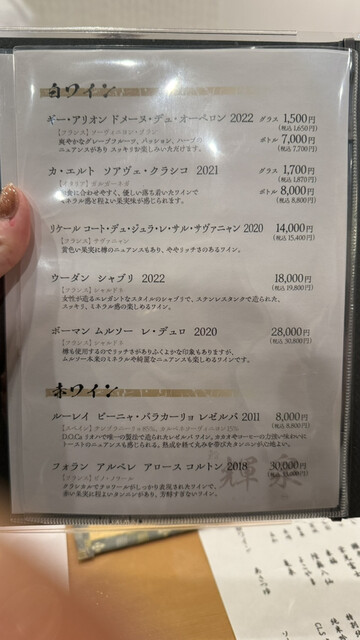 白ワイン
ギー・アリオン ドメーヌ・デュ・オーペロン 2022 グラス 1,500円
(税込 1,650円)
【フランス】ソーヴィニヨン・ブラン ボトル 7,000円
爽やかなグレープフルーツ、パッション、ハーブの (税込 7,700円)
ニュアンスがあり スッキリお楽しみいただけます。
カ・エルト ソアヴェ・クラシコ 2021 グラス 1,700円
(税込 1,870円)
【イタリア】ガルガーネガ ボトル 8,000円
和食に合わせやすく、優しい落ち着いたワインで (税込 8,800円)
ミネラル感と程よい果実味が感じられます。
リケール コート・デュ・ジュラ・レ・サル・サヴァニャン 2020 14,000円
(税込 15,400円)
【フランス】サヴァニャン
黄色い果実に樽のニュアンスもあり、ややリッチさのあるワイン。
ウーダン シャブリ 2022 18,000円
(税込 19,800円)
【フランス】シャルドネ
女性が造るエレガントなスタイルのシャブリで、ステンレスタンクで造られた、
スッキリ、ミネラル感の楽しめるワイン。
ボーマン ムルソー レ・デュロ 2020 28,000円
(税込 30,800円)
【フランス】シャルドネ
樽も使用するのでリッチさがありふくよかな印象もありますが、
ムルソー本来のミネラルや綺麗なニュアンスも楽しめるワインです。
赤ワイン
ルーレイ ビーニャ・パラカーリョ レゼルバ 2011 8,000円
(税込 8,800円)
【スペイン】テンプラニーリョ85%、
D.O.Ca リオハで唯一の製法で造られたレゼルバ ワイン。カカオやコーヒーの力強い味わいに
トーストのニュアンスも感じれる。熟成を経て丸みを帯びたタンニンが心地よい。
フォラン アルベレ アロース コルトン 2018 30,000円
(税込 33,000円)
【フランス】ピノ・ノワール
クラシカルでテロワールがしっかり表現されたワインで、
赤い果実に程よいタンニンがあり、芳醇すぎないワイン。
輝泉